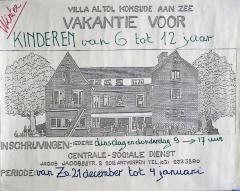 Niko
VILLA ALTOL KOKSIJDE AAN ZEE
VAKANTIE VOOR
KINDEREN van 6 tot 12 jaar
INSCHRIJVINGEN: IEDERE dinsdag en donderdag 9 → 17 uur
CENTRALE-SOCIALE DIENST
JACOB JACOBSSTR. 2 2018 ANTWERPEN TEL (03)
PERIODE: van Zo. 21 december tot 4 januari